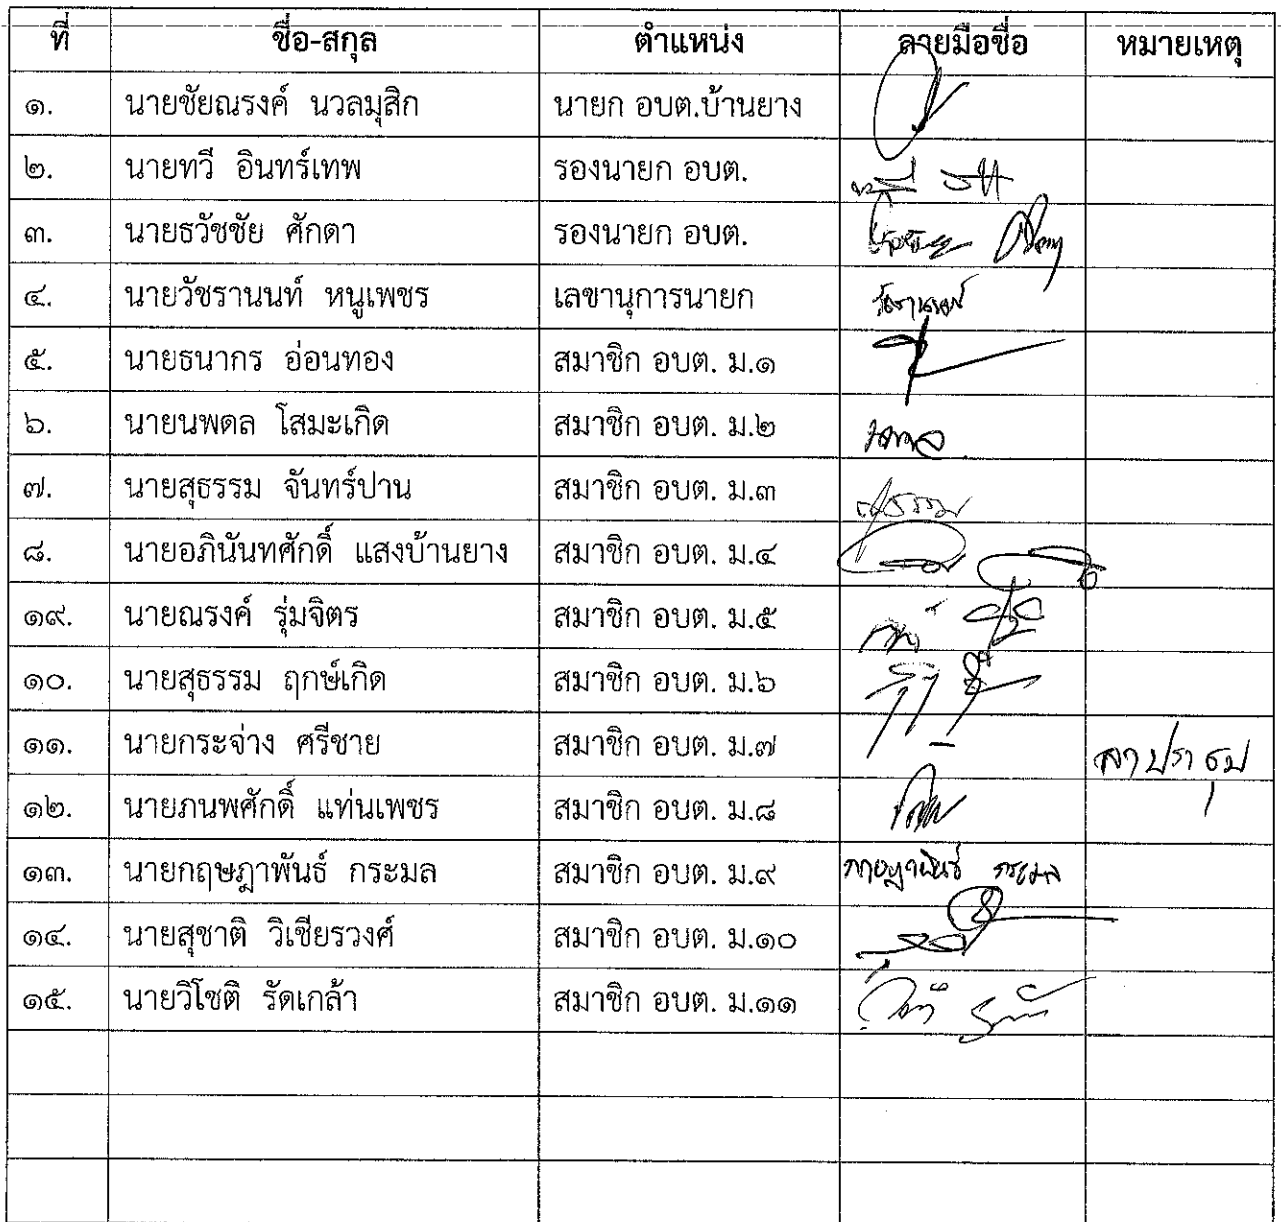 ที่ ชื่อ-สกุล ตำแหน่ง ลายมือชื่อ หมายเหตุ
๑. นายชัยณรงค์ นวลมุสิก นายก อบต.บ้านยาง
๒. นายทวี อินทร์เทพ รองนายก อบต.
๓. นายธวัชชัย ศักดา รองนายก อบต.
๔. นายวัชรานนท์ หนูเพชร เลขานุการนายก วัชรานนท์
๕. นายธนากร อ่อนทอง สมาชิก อบต. ม.๑
๖. นายนพดล โสมะเกิด สมาชิก อบต. ม.๒
๗. นายสุธรรม จันทร์ปาน สมาชิก อบต. ม.๓ สุธรรม
๘. นายอภินันทศักดิ์ แสงบ้านยาง สมาชิก อบต. ม.๔
๑๙. นายณรงค์ รุ่มจิตร สมาชิก อบต. ม.๕
๑๐. นายสุธรรม ฤกษ์เกิด สมาชิก อบต. ม.๖
๑๑. นายกระจ่าง ศรีชาย สมาชิก อบต. ม.๗ ลาประชุม
๑๒. นายภนพศักดิ์ แท่นเพชร สมาชิก อบต. ม.๘
๑๓. นายกฤษฎาพันธ์ กระมล สมาชิก อบต. ม.๙ กฤษฎาพันธ์ กระมล
๑๔. นายสุชาติ วิเชียรวงศ์ สมาชิก อบต. ม.๑๐
๑๕. นายวิโชติ รัดเกล้า สมาชิก อบต. ม.๑๑